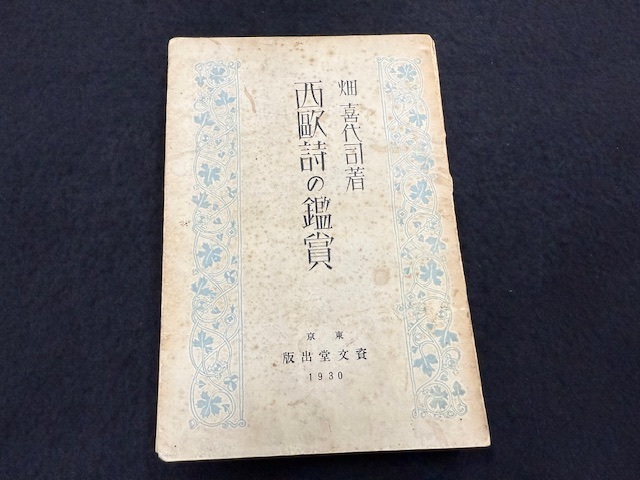 畑 喜代司著
西歐詩の鑑賞
東京
資文堂出版
1930